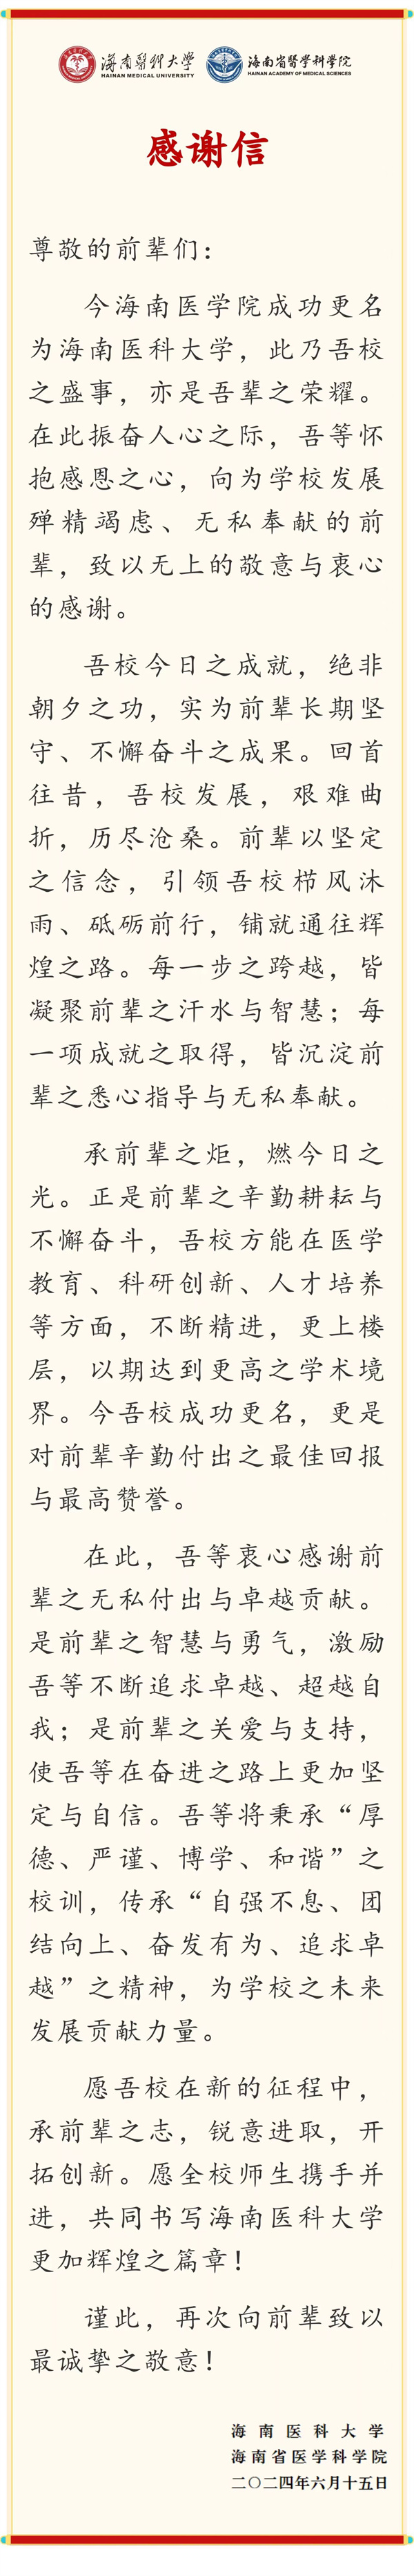 海南醫科大学 海南省醫学科学院
HAINAN MEDICAL UNIVERSITY HAINAN ACADEMY OF MEDICAL SCIENCES
感谢信
尊敬的前辈们：
今海南医学院成功更名
为海南医科大学，此乃吾校
之盛事，亦是吾辈之荣耀。
在此振奋人心之际，吾等怀
抱感恩之心，向为学校发展
殚精竭虑、无私奉献的前
辈，致以无上的敬意与衷心
的感谢。
吾校今日之成就，绝非
朝夕之功，实为前辈长期坚
守、不懈奋斗之成果。回首
往昔，吾校发展，艰难曲
折，历尽沧桑。前辈以坚定
之信念，引领吾校栉风沐
雨、砥砺前行，铺就通往辉
煌之路。每一步之跨越，皆
凝聚前辈之汗水与智慧；每
一项成就之取得，皆沉淀前
辈之悉心指导与无私奉献。
承前辈之炬，燃今日之
光。正是前辈之辛勤耕耘与
不懈奋斗，吾校方能在医学
教育、科研创新、人才培养
等方面，不断精进，更上楼
层，以期达到更高之学术境
界。今吾校成功更名，更是
对前辈辛勤付出之最佳回报
与最高赞誉。
在此，吾等衷心感谢前
辈之无私付出与卓越贡献。
是前辈之智慧与勇气，激励
吾等不断追求卓越、超越自
我；是前辈之关爱与支持，
使吾等在奋进之路上更加坚
定与自信。吾等将秉承“厚
德、严谨、博学、和谐”之
校训，传承“自强不息、团
结向上、奋发有为、追求卓
越”之精神，为学校之未来
发展贡献力量。
愿吾校在新的征程中，
承前辈之志，锐意进取，开
拓创新。愿全校师生携手并
进，共同书写海南医科大学
更加辉煌之篇章！
谨此，再次向前辈致以
最诚挚之敬意！
海南医科大学
海南省医学科学院
二〇二四年六月十五日